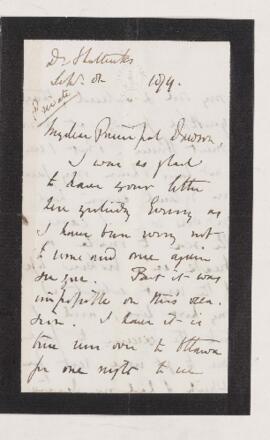 Dr Shattucks
Sept. 8 1879.
Private
My dear Principal Dawson,
I was as glad
to have your letter
here yesterday Evening as
I have been sorry not
to come and once again
see you. But it was
impossible on this occa-
sion. I have it is
true run over to Ottawa
for one night to see